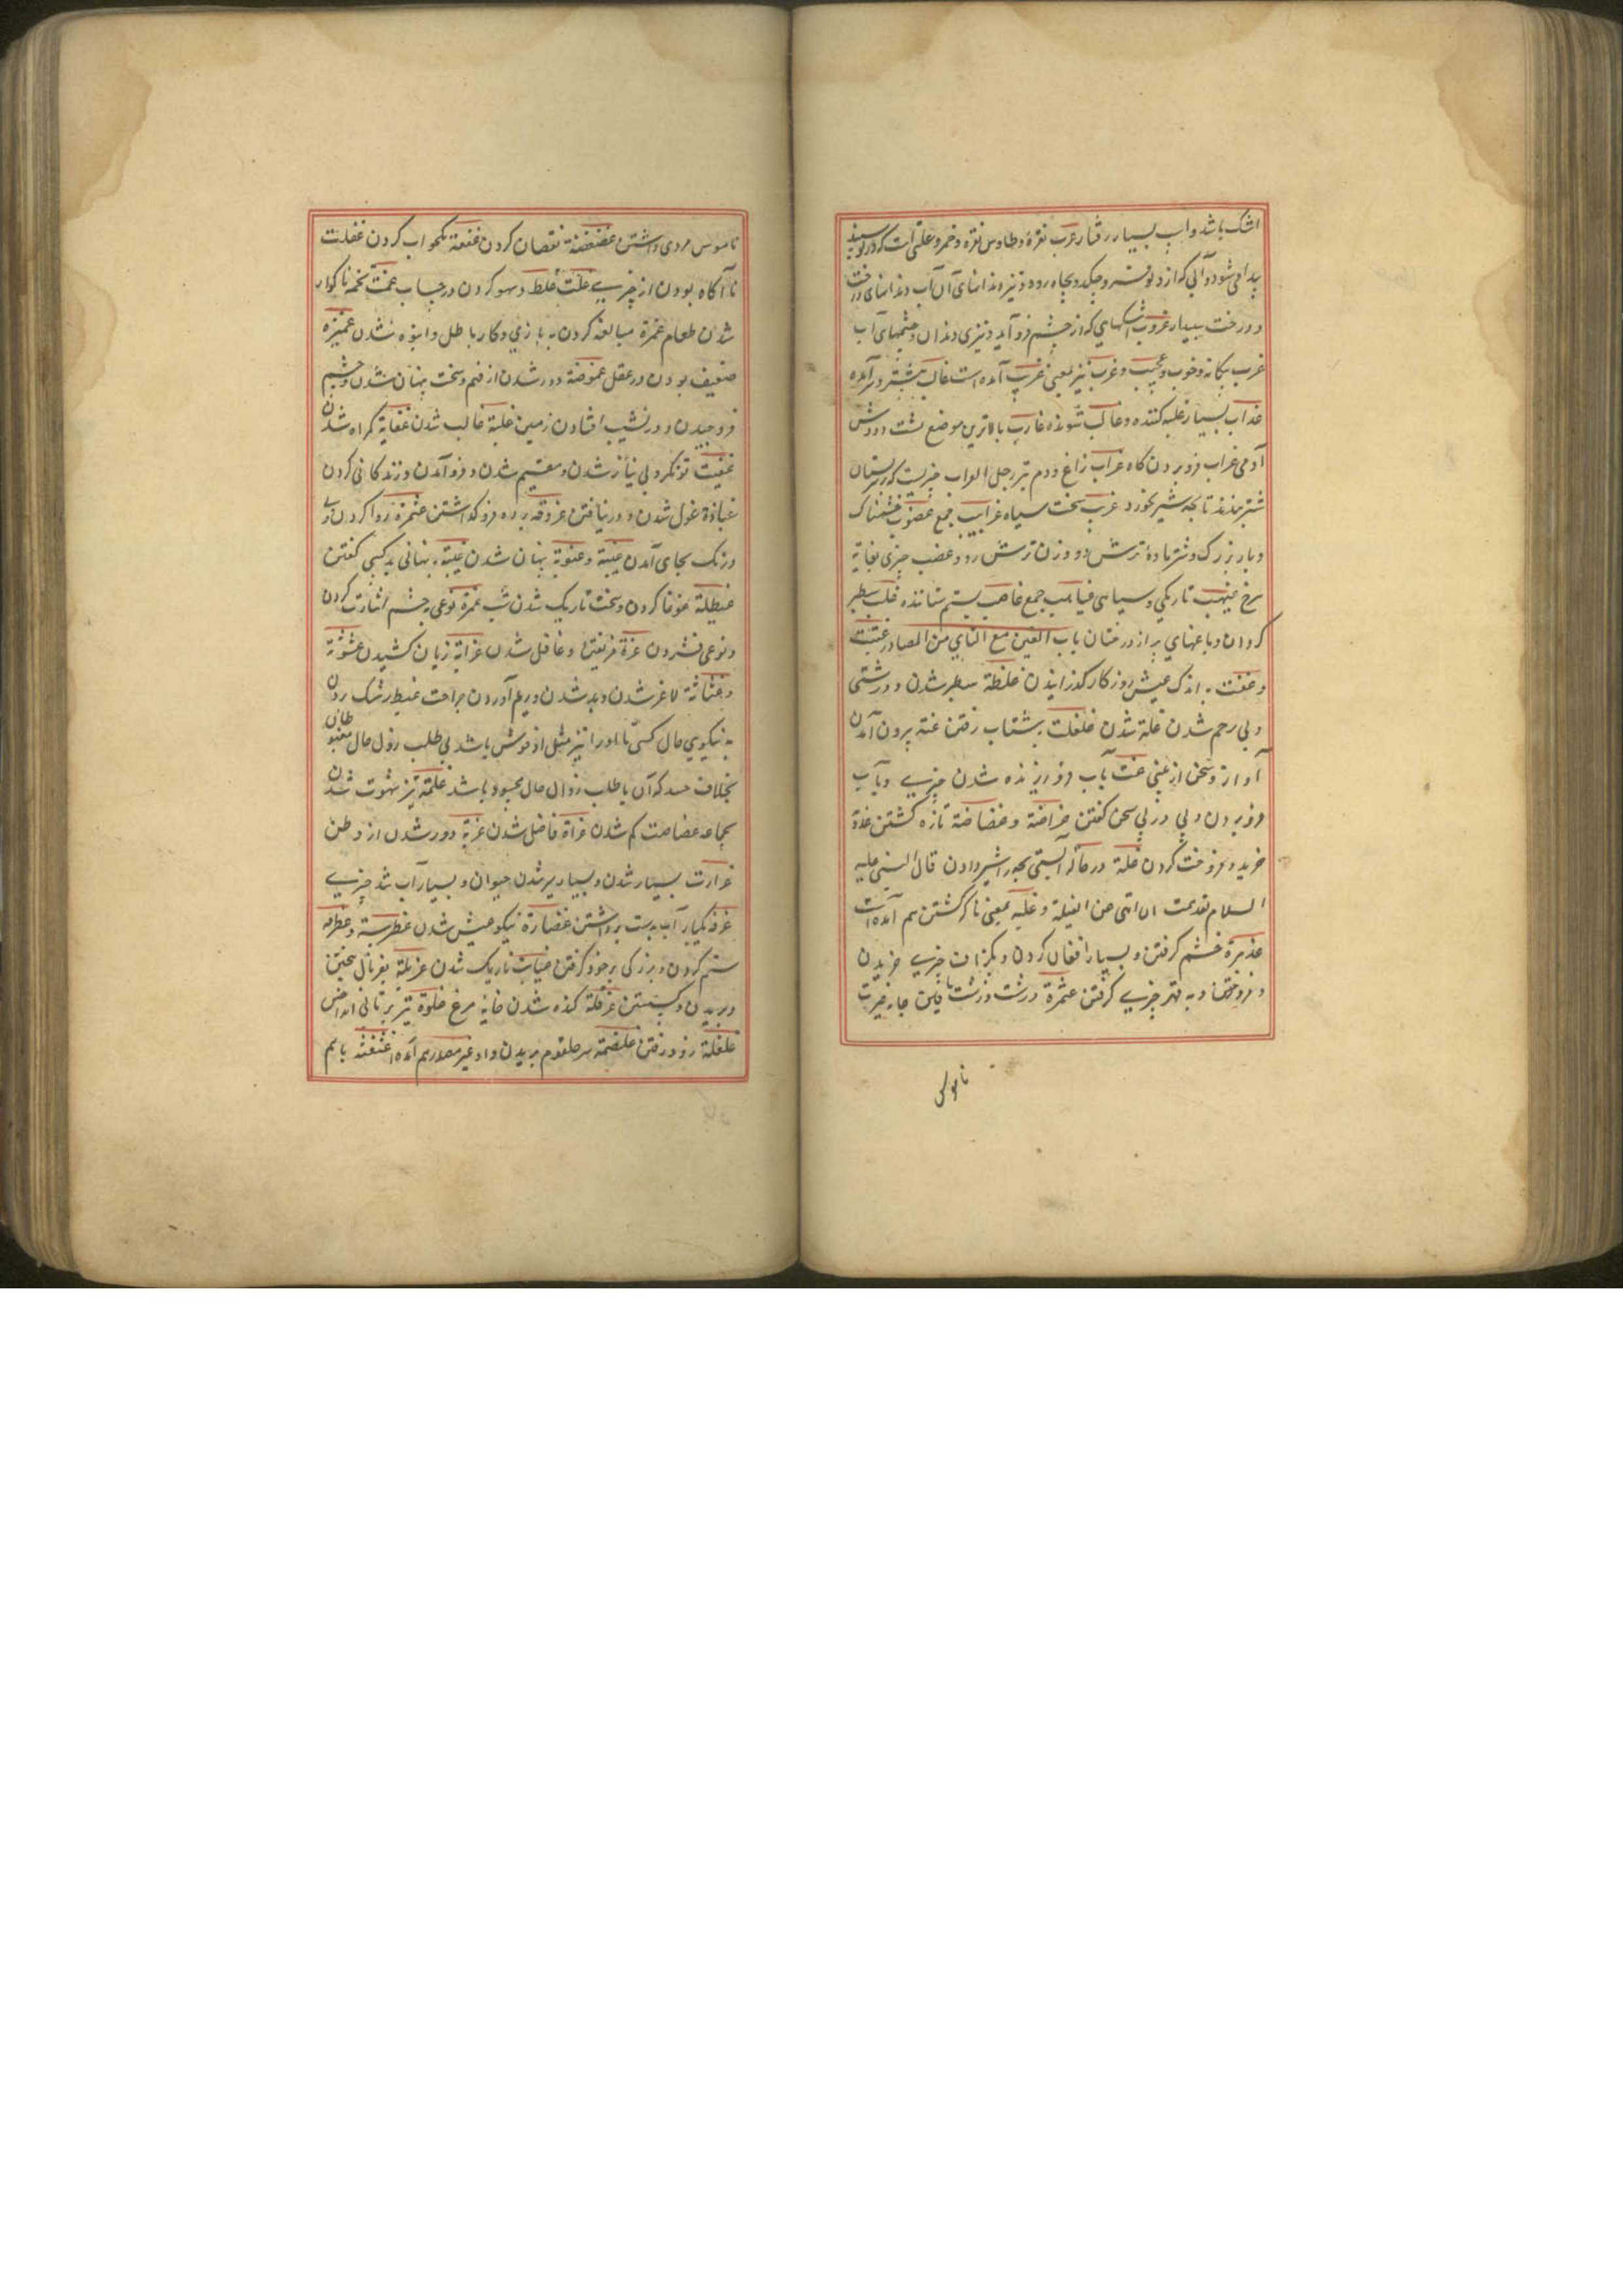 اشک باشد و آب بسیار رفتار غرب نقره و طاوس نقره و خمر و علتی است که در
پیدا می شود و آبی که از دلو و بچکد و بچاه رود و تیزی دندانهای آن آب دندانهای
و درخت سپیدار غروب اشکهایی که از چشم فرو آید و تیزی دندان و چشمهای آب
غریب بیکانه و خوب و عجیب و غرب نیز بمعنی غریب آمده است غالب بیشتر و برآمده
غلاب بسیار غلبه کننده و غالب شونده غارب بالاترین موضع پشت و دوش
آدمی غراب فرو بردن کاه غراب زاغ و دم تبر رجل الغراب چیزیست که بر پستان
شتر بندند تا بچه شیر نخورد غربیب سخت سیاه غرابیب جمع غضوب خشمناک
و مار بزرک و شتر مادهٔ ترش رو و زن ترش رو و غضب چیزی بغایة
سرخ غیهب تاریکی و سیاهی غیاهب جمع غاصب بستم ستاننده غلب سطبر
کردان و باغهای پر از درختان باب الغین مع التای من المصادر غثیثت
و غفت به اندک عیش روزکار کذرانیدن غلظة سطبر شدن و درشتی
و بی رحم شدن غلة شدن غلغلت بشتاب رفتن غنه برون آمدن
آواز و سخن از بینی غت بآب فرو ریزنده شدن چیزی و بآب
فرو بردن و پی در پی سخن کفتن غراضة و غضاضة تازه کشتن غدة
خرید و فروخت کردن غیلة در حالة آبستی بچه را شیر دادن قال النبی علیه
السلام لقد هممت ان انهی عن الغیلة و غیله بمعنی ناکه کشتن هم آمده است
غذمرة خشم کرفتن و بسیار افغان کردن و بکزاف چیزی خریدن
و فروختن و به قهر چیزی کرفتن غثمرة درشت و زشت بافتن جامه غیرت
ناموس
ناموس مردی داشتن غضغضة نقصان کردن غنعة بخواب کردن غفلت
ناآکاه بودن از چیزی غلت غلط و سهو کردن در حساب غمت تخمه ناکوار
شدن طعام غمرة مبالغه کردن به بازی و کار باطل و انبوه شدن غمیزه
ضعیف بودن در عقل غموضة دور شدن از فهم و سخت پنهان شدن و چشم
فرو چیدن و در نشیب افتادن زمین غلبة غالب شدن غفایة کمراه شدن
غنیت تونکر و بی نیاز شدن و مقیم شدن و فرو آمدن و زندکانی کردن
غباوة غول شدن و در نیافتن غدوفه پرده فرو کذاشتن غثمزة روا کردن و بی
درنک بجای آمدن غیبة و غیبوبة پنهان شدن غیبة پنهانی بد کسی کفتن
غیطلة غوغا کردن و سخت تاریک شدن شب غمزة نوعی بچشم اشارت کردن
و نوعی فشردن غرة فریفتن و غافل شدن غرامة زیان کشیدن غثوثة
و غثاثة لاغر شدن و بد شدن و ریم آوردن جراحت غبطه رشک بردن
به نیکویی حال کسی تا او را نیز مثل او خوش باشد بی طلب زوال حال مغبوطان
بخلاف حسد که آن با طلب زوال حال محسود باشد غلمة تیز شهوت شدن
بجماع غضاضت کم شدن غزاة فاضل شدن غربة دور شدن از وطن
غزارت بسیار شدن و بسیار پر شدن حیوان و بسیار آب شد چیزی
غرفه یکبار آب بدست برداشتن غضارة نیکو عیش شدن غطرسة و غطرفه
ستم کردن و بزرکی بر خود کرفتن غیابت تاریک شدن غربلة بغربال بیختن
و بریدن و کسستن غرقلة کنده شدن خایه مرغ غلوة تیر پرتابی انداختن
غلغلة زود رفتن غلصمة سر حلقوم بریدن و از غیر مصدر هم آمده غثغثه باهم